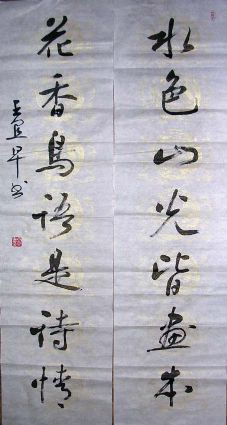 水色山光皆画本
花香鸟语是诗情